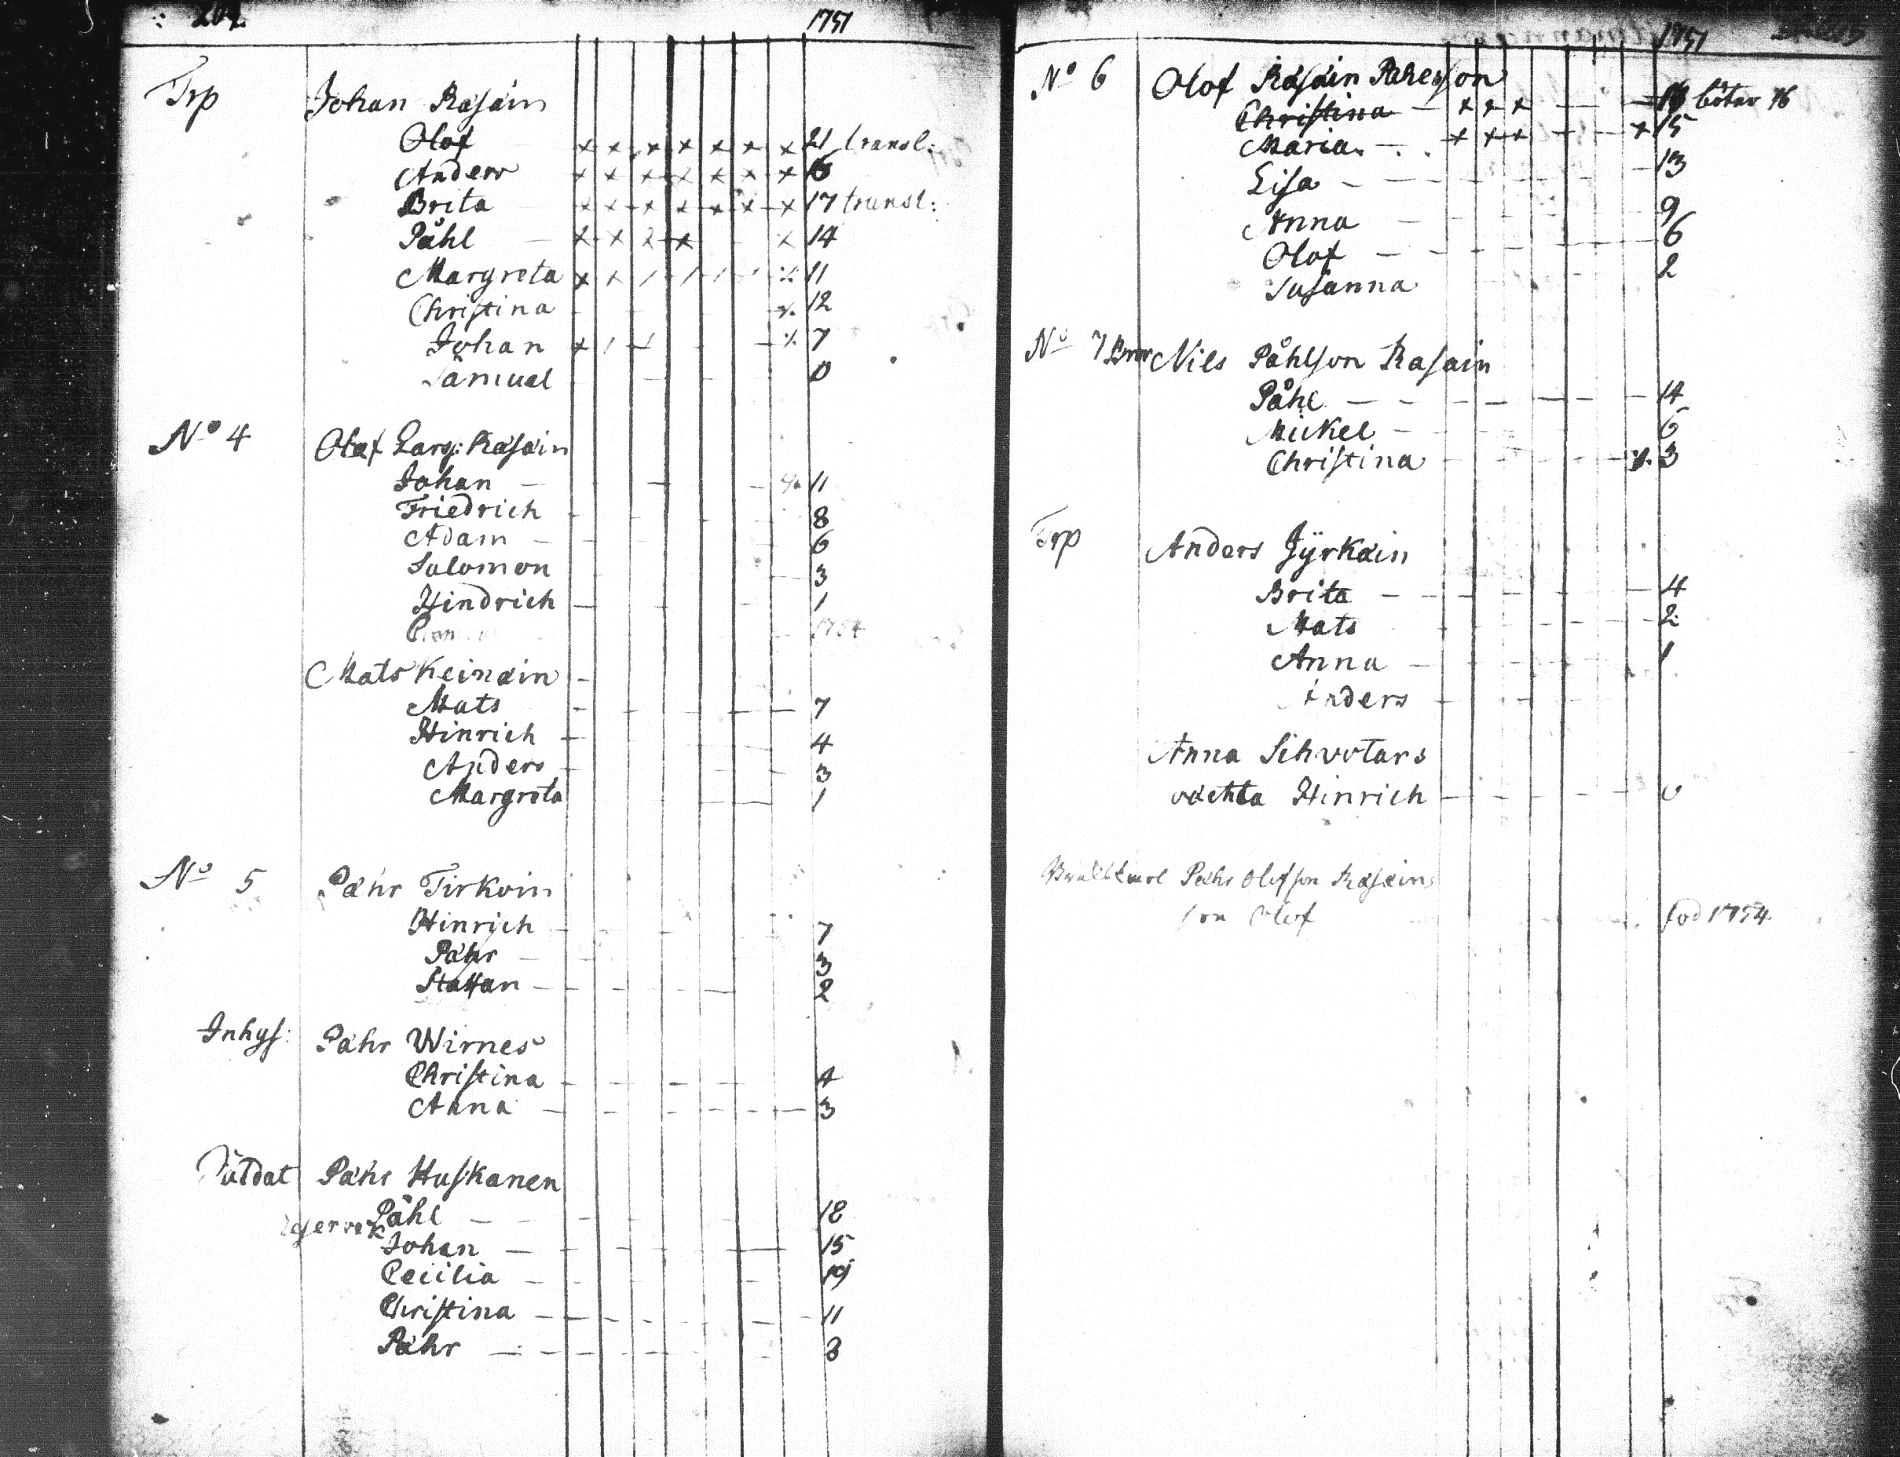 204. 1751
Trp Johan Räsäin
Olof × × × × × × × 21 transl:
Anders × × × × × × ×
Brita × × × × × × × 17 transl:
Påhl × × 14
Margreta 11
Christina 12
Johan 7
Samuel 0
No 4 Olof Larſ: Räsäin
Johan 11
Friedrich 8
Adam 6
Salomon 3
Hindrich 1
1754
Mats Keinäin
Mats 7
Hinrich 4
Anders 3
Margreta 1
No 5 Pähr Tirkoin
Hinrich 7
Pähr 3
Staffan 2
Inhyſ: Pähr Wirnes
Christina 4
Anna 3
Påhl 18
Johan 15
Cecilia
Christina 11
Pähr 3
1751
No 6 Olof Räsäin Pährsson
Christina × × × böter 16
Maria × × × × 15
Lisa 13
Anna 9
Olof 6
Susanna 2
No 7 Nils Påhlson Räsäin
Påhl 14
Mickel 6
Christina 3
Trp Anders Jÿrkäin
Brita 4
Mats 2
Anna 1
Anders
Anna Sihvotars
oächta Hinrich 0
Pähr Olofson Räsäins
son Olof föd 1754